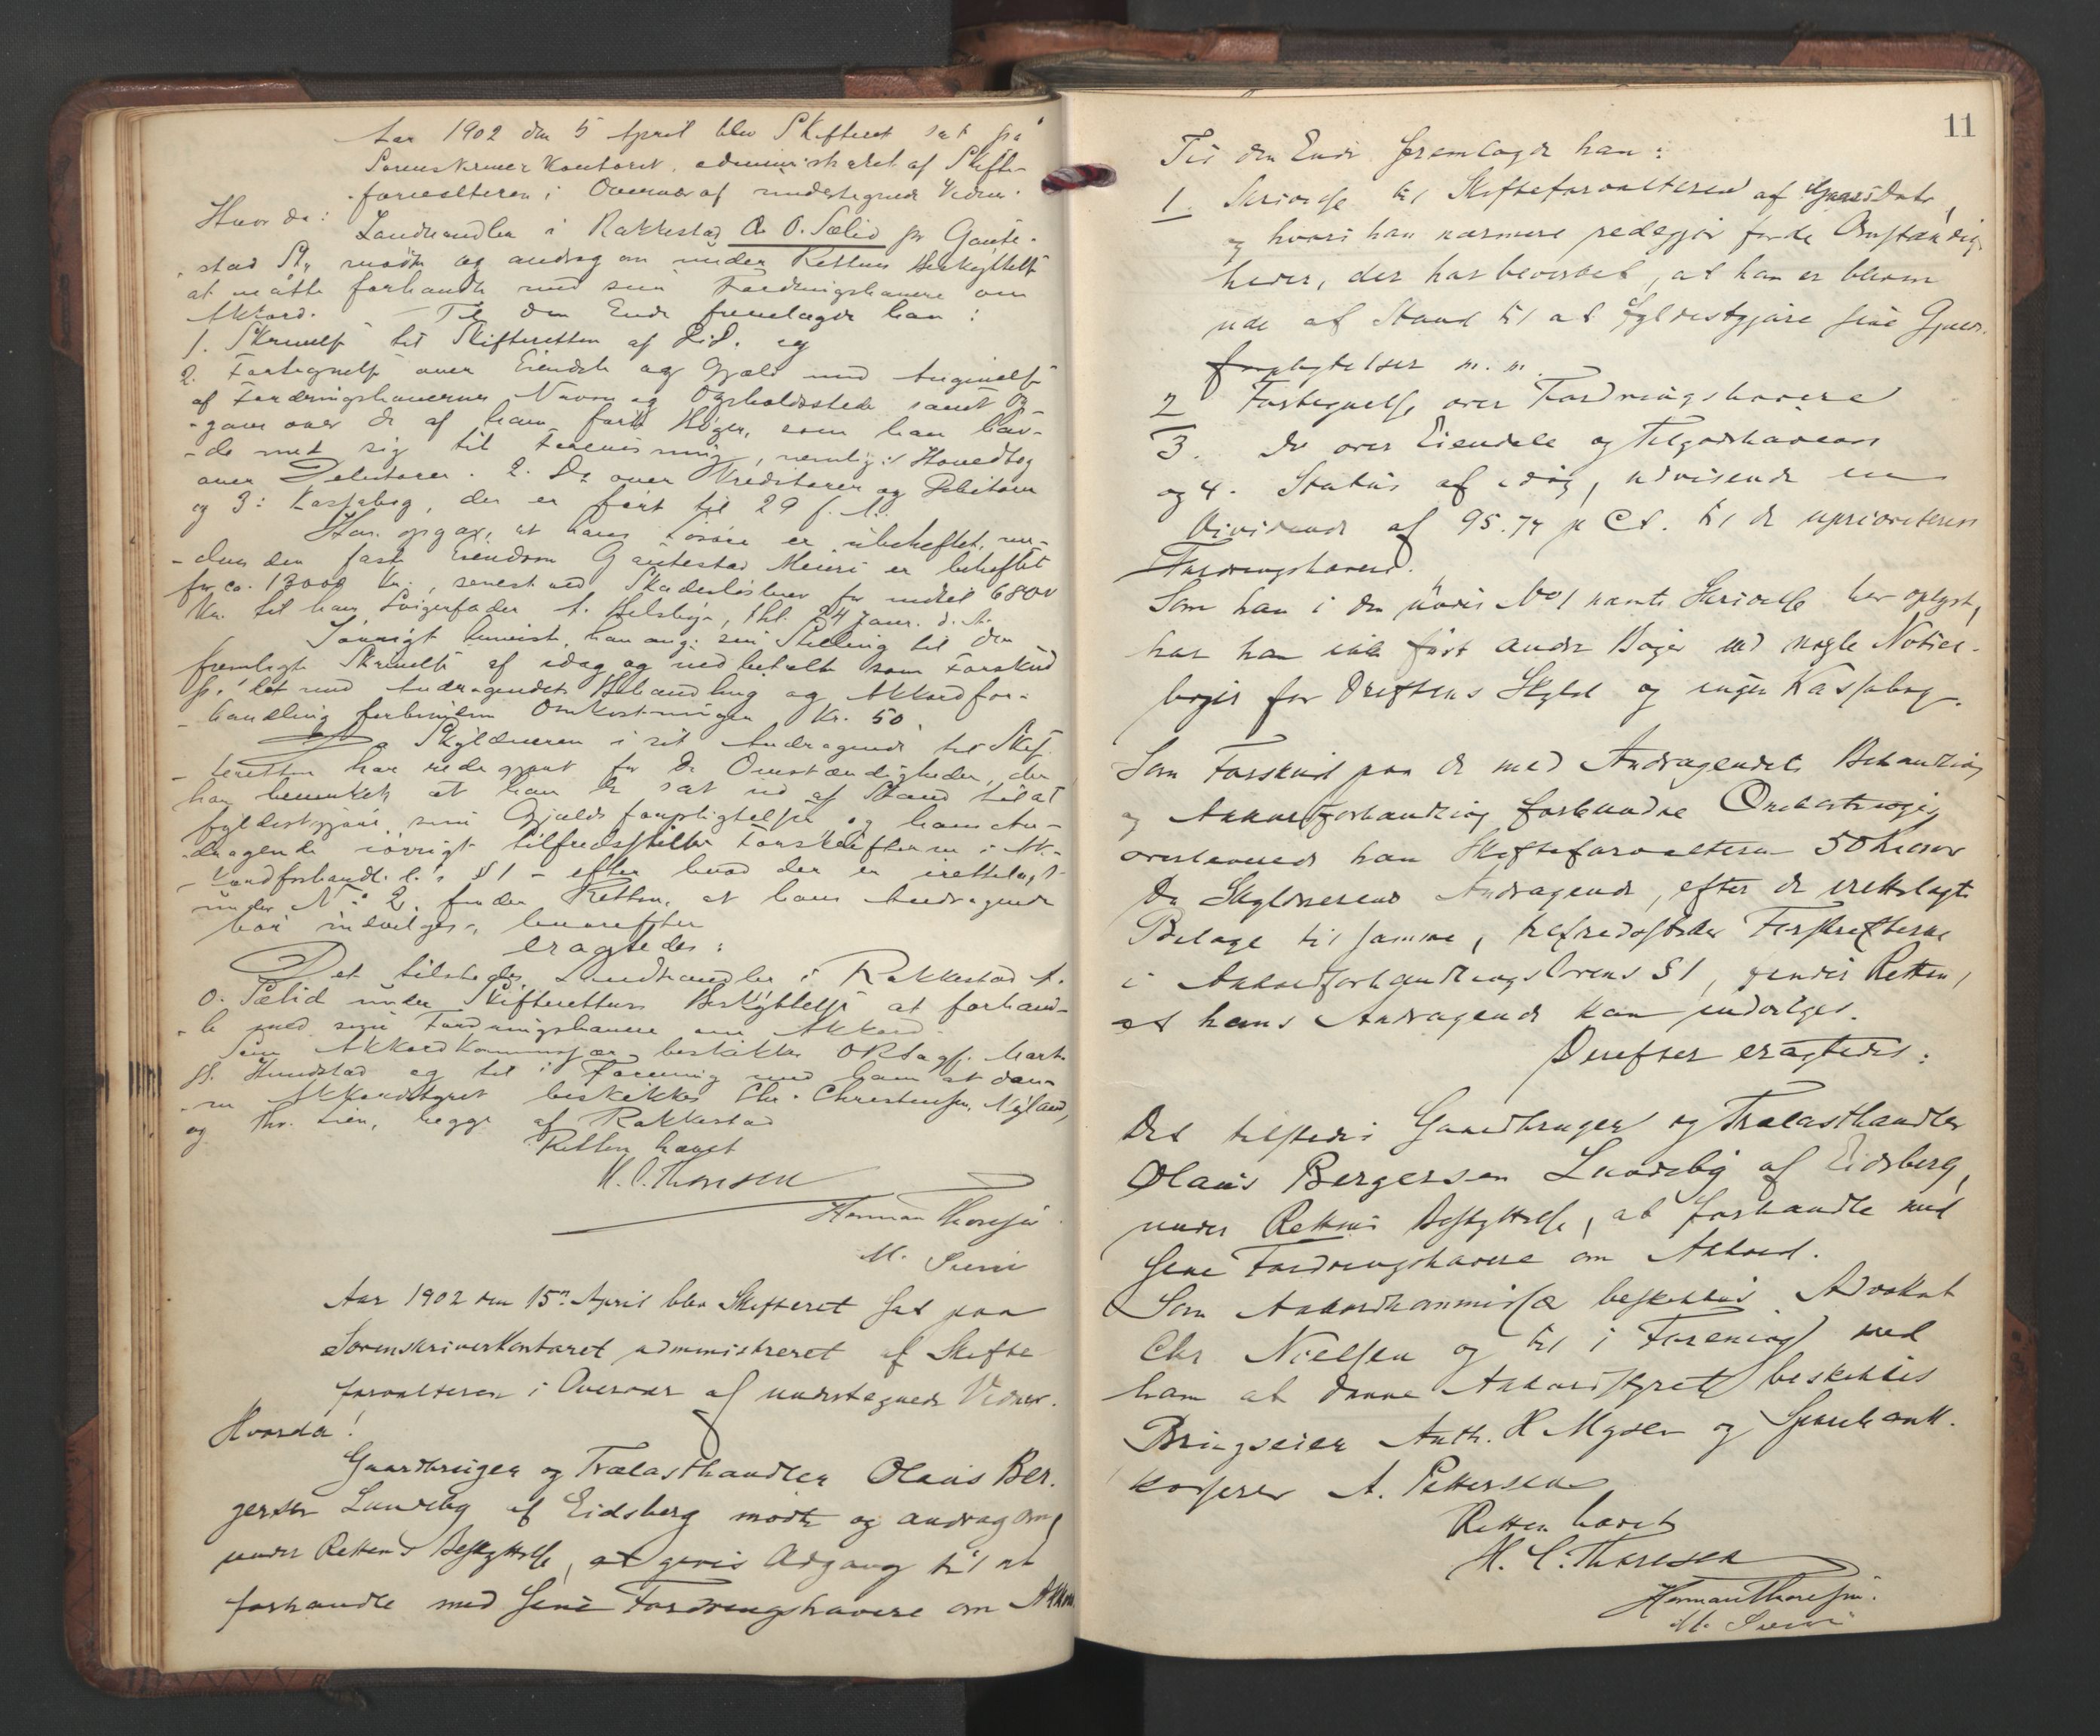 Aar 1902 den 5 April blev Skifteret sat på
Sorenskriverkontoret, administreret af Skifte-
forvalteren i Overvær af undertegnede Vidner.
Hvor da:
Landhandler i Rakkestad A. O. Sælid pr Gaute-
stad St. mødte og androg om under Rettens Beskyttelse
at måtte forhandle med sine Fordringshavere om
Akkord. Til den Ende fremlagde han:
1. Skrivelse til Skifteretten af D.D. og
2. Fortegnelse over Eiendele og Gjæld med Angivelse
af Fordringshavernes Navn og Opholdssted samt Op-
-gave over de af ham førte Bøger, som han hav-
-de med sig til Forevisning, nemlig: 1 Hovedbog
over Debitorer. 2. Do over Kreditorer og Debitorer
og 3: Kassabog, der er ført til 29 f. M.
Han opgav, at hans Løsøre er ubeheftet, me-
-dens den faste Eiendom Gautestad Meieri er beheftet
for ca. 13000 Kr., senest ved Skadesløsbrev for indtil 6800
Kr. til hans Svigerfader A. Helsby, thl. 24 Janr. d. A.
Iøvrigt henviste han ang: sin Stilling til den
fremlagte Skrivelse af idag og indbetalte som Forskud
på det med Andragendets Behandling og Akkordfor-
-handling forbundne Omkostninger Kr. 50.
Da Skyldneren i sit Andragende til Skif-
-teretten har redegjort for de Omstændigheder, der
har bevirket at han er sat ud af Stand til at
fyldestgjøre sine Gjældsforpligtelser og hans An-
-dragende iøvrigt tilfredsstiller Forskrifterne i Ak-
-kordforhandl. l.s § 1 - efter hvad der er irettelagt
under No 2, finder Retten, at hans Andragende
bør indvilges, hvorefter
eragtedes:
Det tilstedes Landhandler i Rakkestad A.
O. Sælid under Skifterettens Beskyttelse at forhand-
-le med sine Fordringshavere om Akkord.
Som Akkordkommissær beskikkes ORSagf. Mart.
H. Hundstad og til i Forening med ham at dan-
-ne Akkordstyret beskikkes Chr. Christensen, Nyland,
og Thr. Lien, begge af Rakkestad
Retten hævet
H. C. Thoresen
Herman Thoresen
M.
Aar 1902 den 15n April blev Skifteret sat paa
Sorenskriverkontoret administreret af Skifte
forvalteren i Overvær af undertegnede Vidner.
Hvorda!
Gaardbruger og Trælasthandler Olaus Ber-
gersen Lundeby af Eidsberg mødte og androg om,
under Rettens Beskyttelse, at gives Adgang til at
forhandle med sine Fordringshavere om Akkord.
11
Til den Ende fremlagde han:
1. Skrivelse til Skifteforvalteren af Gaars Dato,
og hvori han nærmere redegjør for de Omstændig-
heder, der har bevirket, at han er bleven
ude af Stand til at fyldestgjøre sine Gjælds-
forpligtelser m. m.
2 Fortegnelse over Fordringshavere
3. Do over Eiendele og Tilgodehavender
og 4. Status af idag, udvisende en
Dividende af 95.74 p Ct. til de upriorterede
Fordringshavere.
Som han i den under No 1 nævnte Skrivelse har oplyst,
har han ikke ført andre Bøger end nogle Notice-
bøger for Driftens Skyld og ingen Kassabog.
Som Forskud paa de med Andragendets Behandling
og Akkordforhandling forbundne Omkostninger
overleverede han Skifteforvalteren 50 Kroner
Da Skyldnerens Andragende, efter de irettelagte
Bilage til samme, tilfredsstiller Forskrifterne
i Akkordforhandlingslovens § 1, finder Retten,
at hans Andragende kan indvilges.
Derefter eragtedes:
Det tilstedes Gaardbruger og Trælasthandler
Olaus Bergersen Lundeby af Eidsberg,
under Rettens Beskyttelse, at forhandle med
sine Fordringshavere om Akkord.
Som Akkordkommissær beskikkes Advokat
Chr Nielsen og til i Forening med
ham at danne Akkordstyret beskikkes
Brugseier Anth. H Mysen og Sparebank-
kasserer A. Pettersen
Retten hævet
H. C. Thoresen
Herman Thoresen.
M.